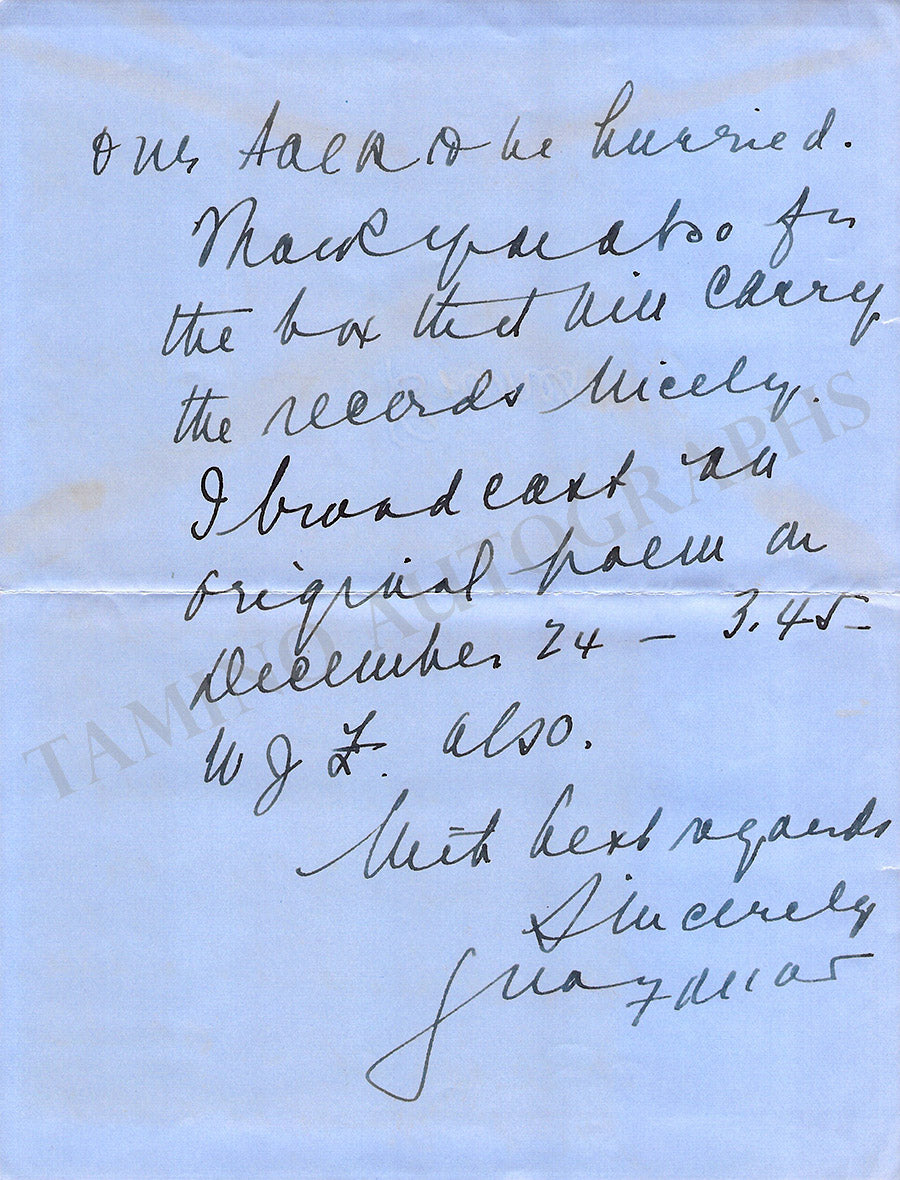 our talk to be hurried.
Thank you also for
the box that will carry
the records nicely.
I broadcast an
original poem on
December 24 – 3.45 –
W J Z. also.
With best regards
Sincerely
TAMINO AUTOGRAPHS